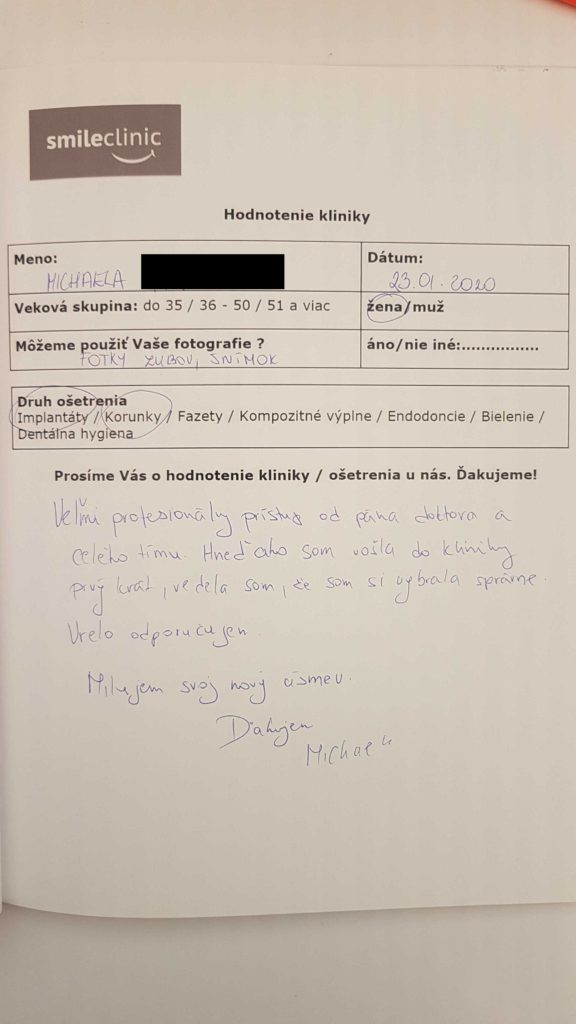 smileclinic
Hodnotenie kliniky
Meno:
MICHAELA
Dátum:
23.01.2020
Veková skupina: do 35 / 36 - 50 / 51 a viac
žena/muž
Môžeme použiť Vaše fotografie ?
FOTKY ZUBOV, SNÍMOK
áno/nie iné:................
Druh ošetrenia
Implantáty / Korunky / Fazety / Kompozitné výplne / Endodoncie / Bielenie /
Dentálna hygiena
Prosíme Vás o hodnotenie kliniky / ošetrenia u nás. Ďakujeme!
Veľmi profesionálny prístup od pána doktora a
celého tímu. Hneď ako som vošla do kliniky
prvý krát, vedela som, že som si vybrala správne.
Vrelo odporučujem
Milujem svoj nový úsmev.
Ďakujem
Michael